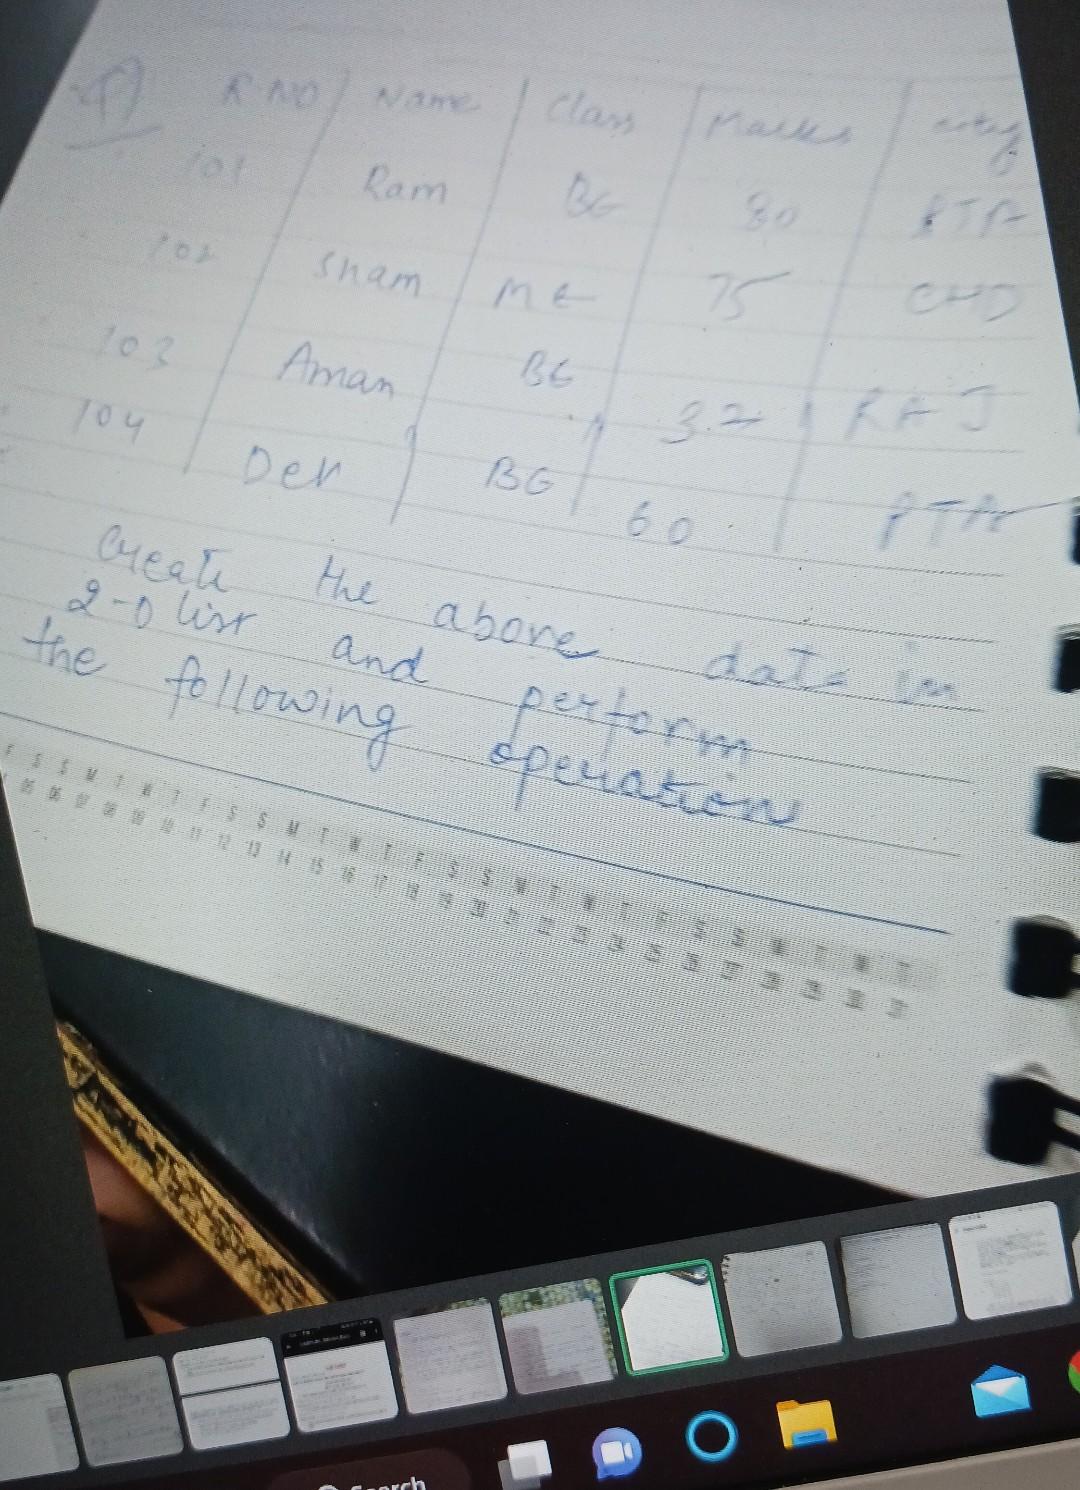 R.NO Name Class Marks
101 Ram BE 80 PTA
102 Sham ME 75 CHD
103 Aman BE 32 RAJ
104 Dev BE 60 PTA
Create the above data in
2-D list and perform
the following operations
F S S M T W T F S S M T W T F S S M T W T F S S M T W T
05 06 07 08 09 10 11 12 13 14 15 16 17 18 19 20 21 22 23 24 25 26 27 28 29 30 31
Search